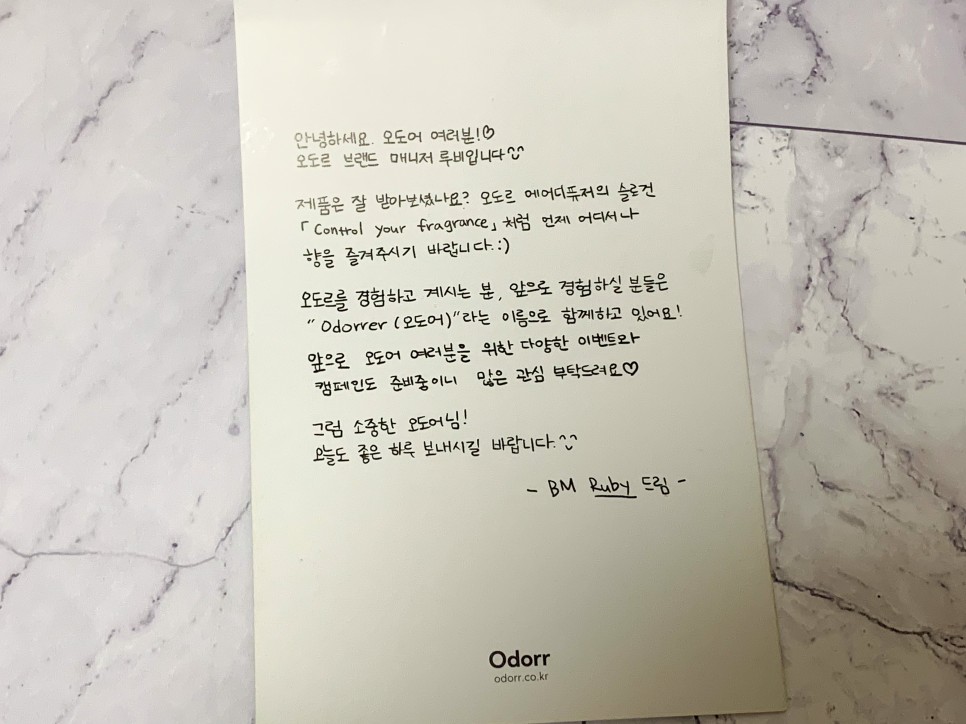 안녕하세요. 오도어 여러분!♡
오도르 브랜드 매니저 루비입니다^^
제품은 잘 받아보셨나요? 오도르 에어디퓨저의 슬로건
「Control your fragrance」처럼 언제 어디서나
향을 즐겨주시기 바랍니다.:)
오도르를 경험하고 계시는 분, 앞으로 경험하실 분들은
"Odorrer (오도어)"라는 이름으로 함께하고 있어요!
앞으로 오도어 여러분을 위한 다양한 이벤트와
캠페인도 준비중이니 많은 관심 부탁드려요♡
그럼 소중한 오도어님!
오늘도 좋은 하루 보내시길 바랍니다.^^
- BM Ruby 드림 -
Odorr
odorr.co.kr